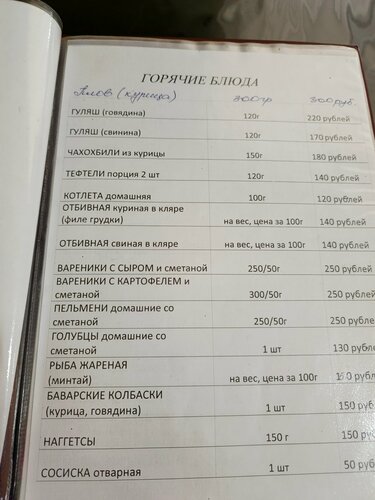 ГОРЯЧИЕ БЛЮДА
Плов (курица) 300гр 300руб.
ГУЛЯШ (говядина) 120г 220 рублей
ГУЛЯШ (свинина) 120г 170 рублей
ЧАХОХБИЛИ из курицы 150г 180 рублей
ТЕФТЕЛИ порция 2 шт 120г 140 рублей
КОТЛЕТА домашняя 100г 120 рублей
ОТБИВНАЯ куриная в кляре
(филе грудки) на вес, цена за 100г 140 рублей
ОТБИВНАЯ свиная в кляре на вес, цена за 100г 140 рублей
ВАРЕНИКИ С СЫРОМ и сметаной 250/50г 250 рублей
ВАРЕНИКИ С КАРТОФЕЛЕМ и
сметаной 300/50г 250 рублей
ПЕЛЬМЕНИ домашние со
сметаной 250/50г 250 рублей
ГОЛУБЦЫ домашние со
сметаной 1 шт 130 рубле
РЫБА ЖАРЕНАЯ
(минтай) на вес, цена за 100г рубле
БАВАРСКИЕ КОЛБАСКИ
(курица, говядина) 1 шт 150 руб
НАГГЕТСЫ 150 г 150 ру
СОСИСКА отварная 1 шт 50 руб